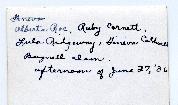 Geneva
Alberta Roe, Ruby Cornett,
Lula Ridgeway, Geneva Caldwell
Bagnell dam.
afternoon of June 27, '36